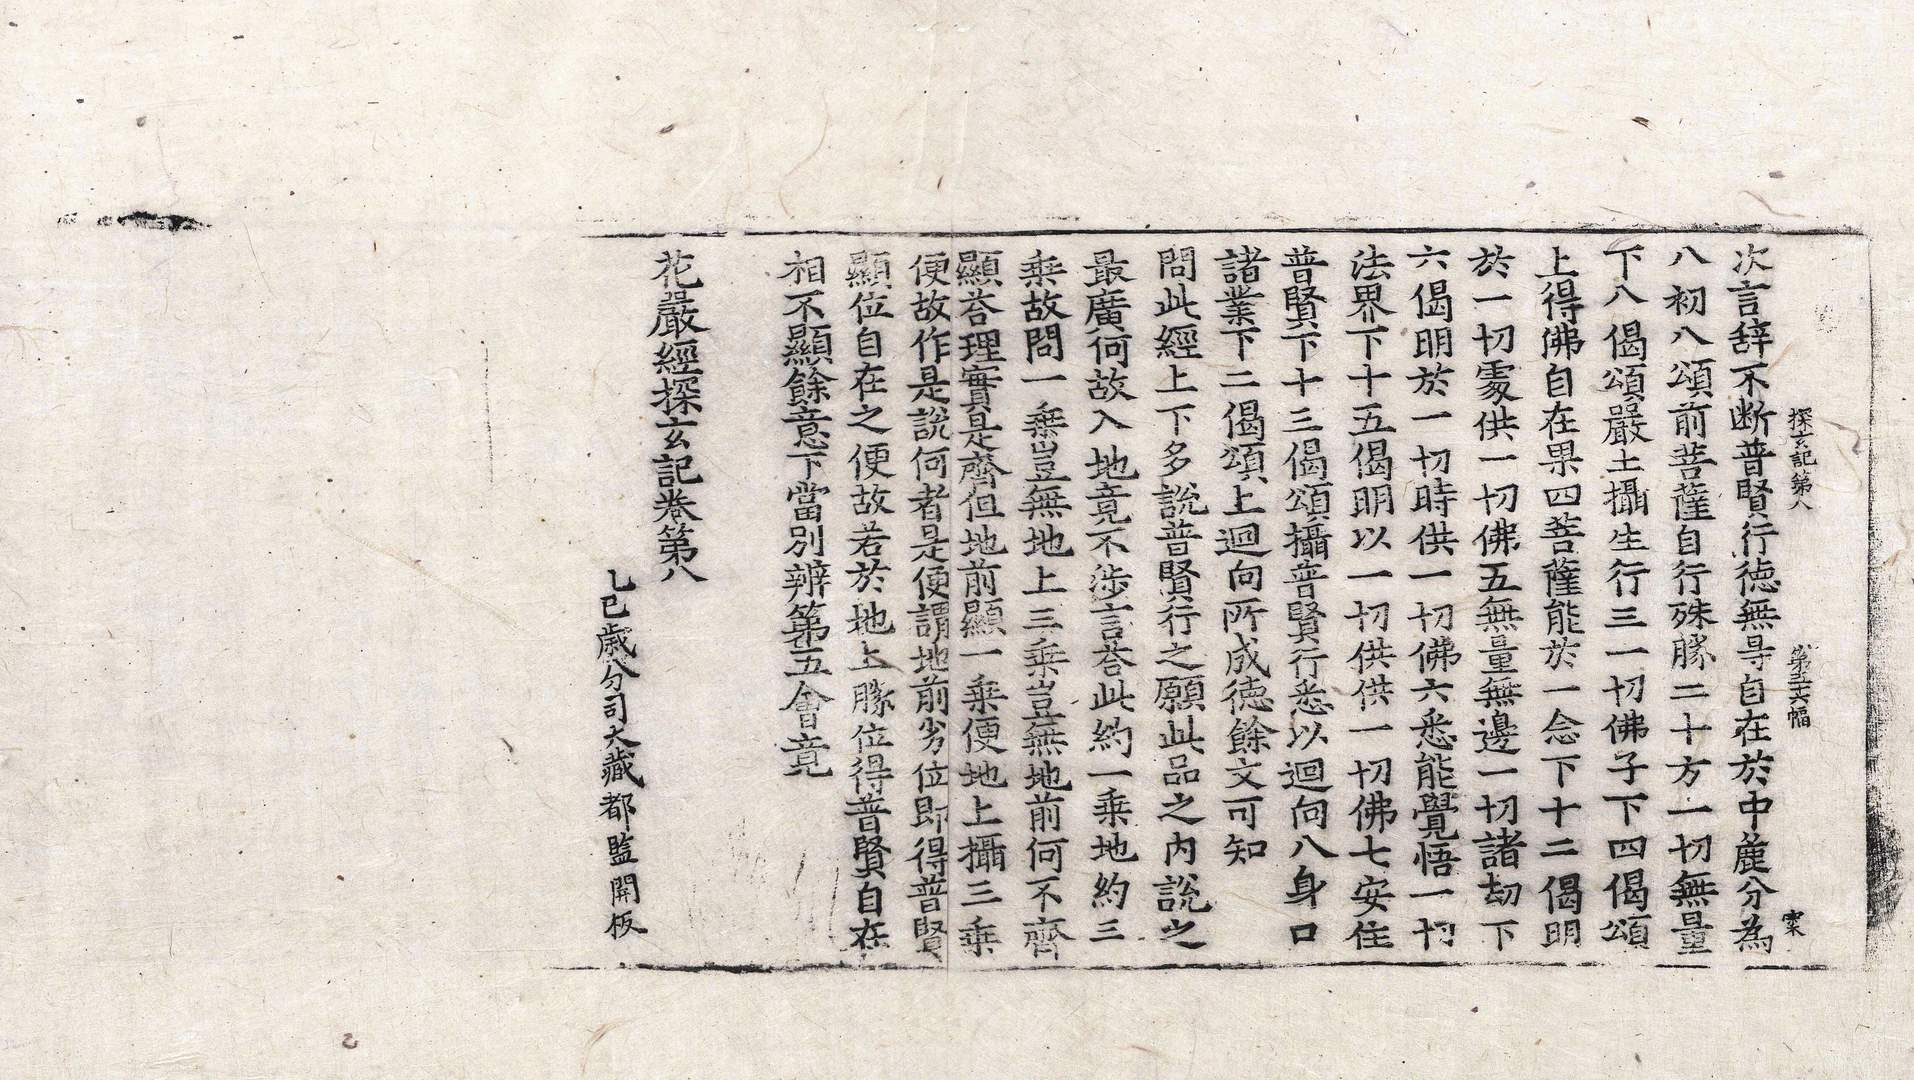 探玄記第八　第五十六幅　寀
次言辞不断普賢行徳無㝵自在於中麁分為
八初八頌前菩薩自行殊勝二十方一切無量
下八偈頌嚴土攝生行三一切佛子下四偈頌
上得佛自在果四菩薩能於一念下十二偈明
於一切䖏供一切佛五無量無邊一切諸劫下
六偈明於一切時供一切佛六悉能覺悟一切
法界下十五偈明以一切供供一切佛七安住
普賢下十三偈頌攝普賢行悉以迴向八身口
諸業下二偈頌上迴向所成徳餘文可知
問此經上下多說普賢行之願此品之內說之
最廣何故入地竟不涉言荅此約一乗地約三
乗故問一乗豈無地上三乗豈無地前何不齊
顯荅理實是齊但地前顯一乗便地上攝三乗
便故作是說何者是便謂地前劣位即得普賢
顯位自在之便故若於地上勝位得普賢自在
相不顯餘意下當別辨第五會竟
花嚴經探玄記卷第八
乙巳歳分司大藏都監開板